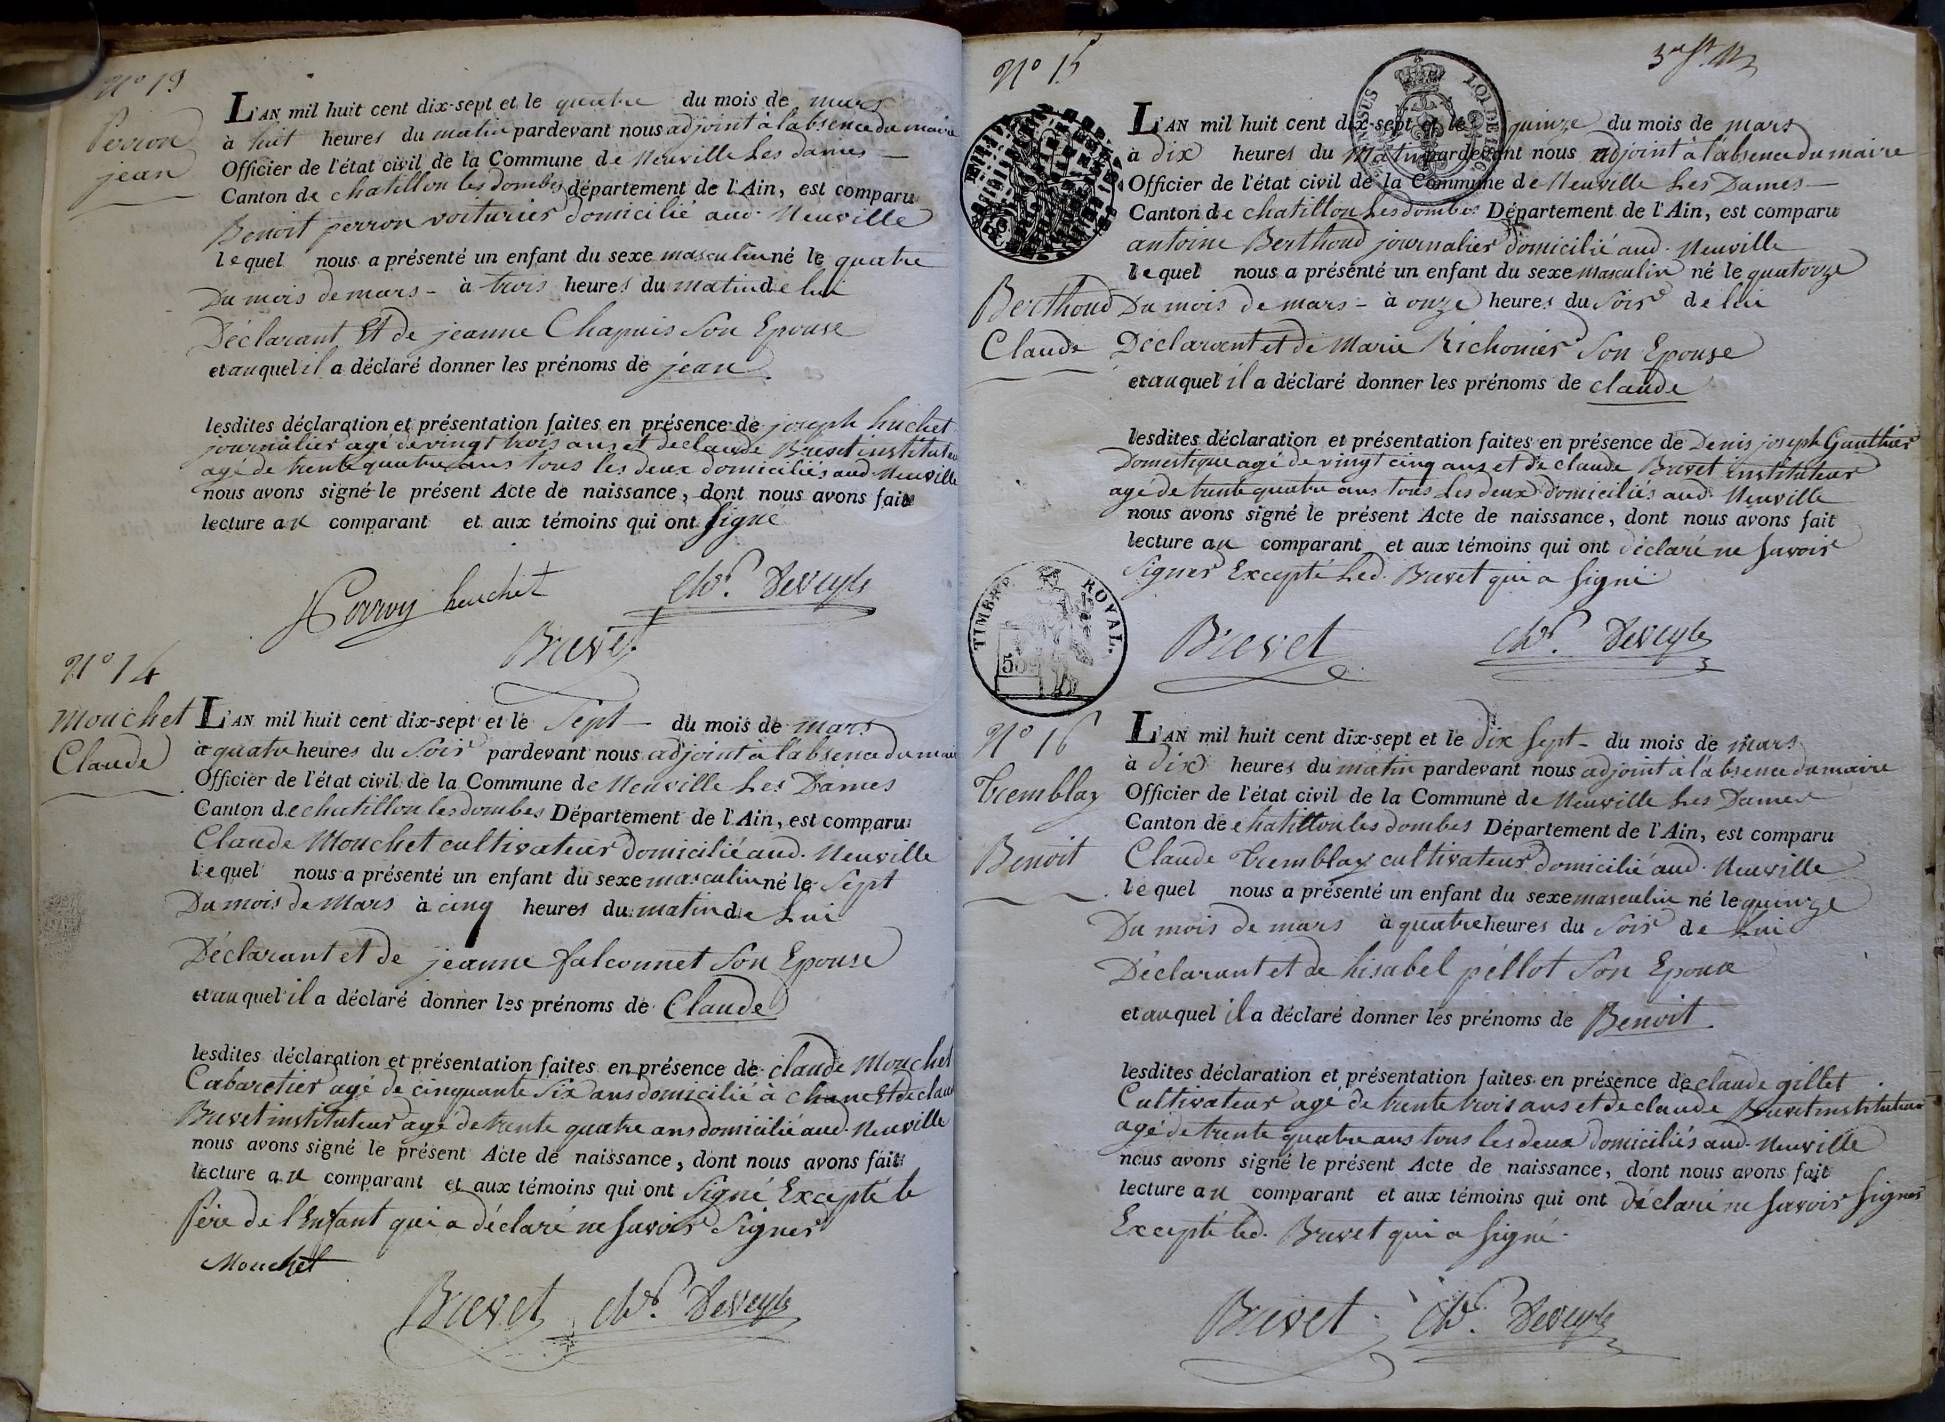 N° 13
Perron
jean
L'AN mil huit cent dix-sept et le quatre du mois de mars
à huit heures du matin pardevant nous adjoint à l'absence du maire
Officier de l'état civil de la Commune de Neuville Les Dames
Canton de chatillon les dombes département de l'Ain, est comparu
Benoit perron voiturier domicilié aud. Neuville
lequel nous a présenté un enfant du sexe masculin né le quatre
Du mois de mars - à trois heures du matin de lui
Déclarant Et de jeanne Chapuis Son Epouse
et auquel il a déclaré donner les prénoms de jean
lesdites déclaration et présentation faites en présence de joseph huchet
journalier agé de vingt trois ans et de claude Brevet instituteur
agé de trente quatre ans tous les deux domiciliés aud. Neuville
nous avons signé le présent Acte de naissance, dont nous avons fait
lecture au comparant et aux témoins qui ont Signé
huchet
chr. Deveyle
Brevet
N° 14
Mouchet
Claude
L'AN mil huit cent dix-sept et le Sept du mois de mars
à quatre heures du Soir pardevant nous adjoint à l'absence du maire
Officier de l'état civil de la Commune de Neuville Les Dames
Canton de chatillon les dombes Département de l'Ain, est comparu
Claude Mouchet cultivateur domicilié aud. Neuville
lequel nous a présenté un enfant du sexe masculin né le Sept
Du mois de Mars à cinq heures du matin de Lui
Déclarant et de jeanne falconnet Son Epouse
et auquel il a déclaré donner les prénoms de Claude
lesdites déclaration et présentation faites en présence de claude Mouchet
Cabaretier agé de cinquante Six ans domicilié à chane Et de claude
Brevet instituteur agé de trente quatre ans domicilié aud. Neuville
nous avons signé le présent Acte de naissance, dont nous avons fait
lecture au comparant et aux témoins qui ont Signé Excepté le
Père de l'Enfant qui a déclaré ne Savoir Signer
Mouchet
Brevet chr. Deveyle
N° 15
TIMBRE ROYAL.
50
Berthoud
Claude
L'AN mil huit cent dix-sept et le quinze du mois de mars
à dix heures du Matin pardevant nous adjoint à l'absence du maire
Officier de l'état civil de la Commune de Neuville Les Dames
Canton de chatillon Les dombes Département de l'Ain, est comparu
antoine Berthoud journalier domicilié aud. Neuville
lequel nous a présenté un enfant du sexe masculin né le quatorze
Du mois de mars - à onze heures du Soir de lui
Déclarant et de Marie Richonier Son Epouse
et auquel il a déclaré donner les prénoms de claude
lesdites déclaration et présentation faites en présence de Denis joseph Gauthier
Domestique agé de vingt cinq ans et de claude Brevet instituteur
agé de trente quatre ans tous Les deux domiciliés aud. Neuville
nous avons signé le présent Acte de naissance, dont nous avons fait
lecture au comparant et aux témoins qui ont déclaré ne Savoir
Signer Excepté Led. Brevet qui a Signé
Brevet chr. Deveyle
N° 16
Tremblay
Benoit
L'AN mil huit cent dix-sept et le dix Sept du mois de mars
à dix heures du matin pardevant nous adjoint à l'absence du maire
Officier de l'état civil de la Commune de Neuville Les Dames
Canton de chatillon les dombes Département de l'Ain, est comparu
Claude Tremblay cultivateur domicilié aud. Neuville
lequel nous a présenté un enfant du sexe masculin né le quinze
Du mois de mars à quatre heures du Soir de Lui
Déclarant et de hisabel pillot Son Epouse
et auquel il a déclaré donner les prénoms de Benoit
lesdites déclaration et présentation faites en présence de claude gillet
Cultivateur agé de trente trois ans et de claude Brevet instituteur
agé de trente quatre ans tous les deux domiciliés aud. Neuville
nous avons signé le présent Acte de naissance, dont nous avons fait
lecture au comparant et aux témoins qui ont déclaré ne Savoir Signer
Excepté Led. Brevet qui a Signé.
Brevet chr. Deveyle